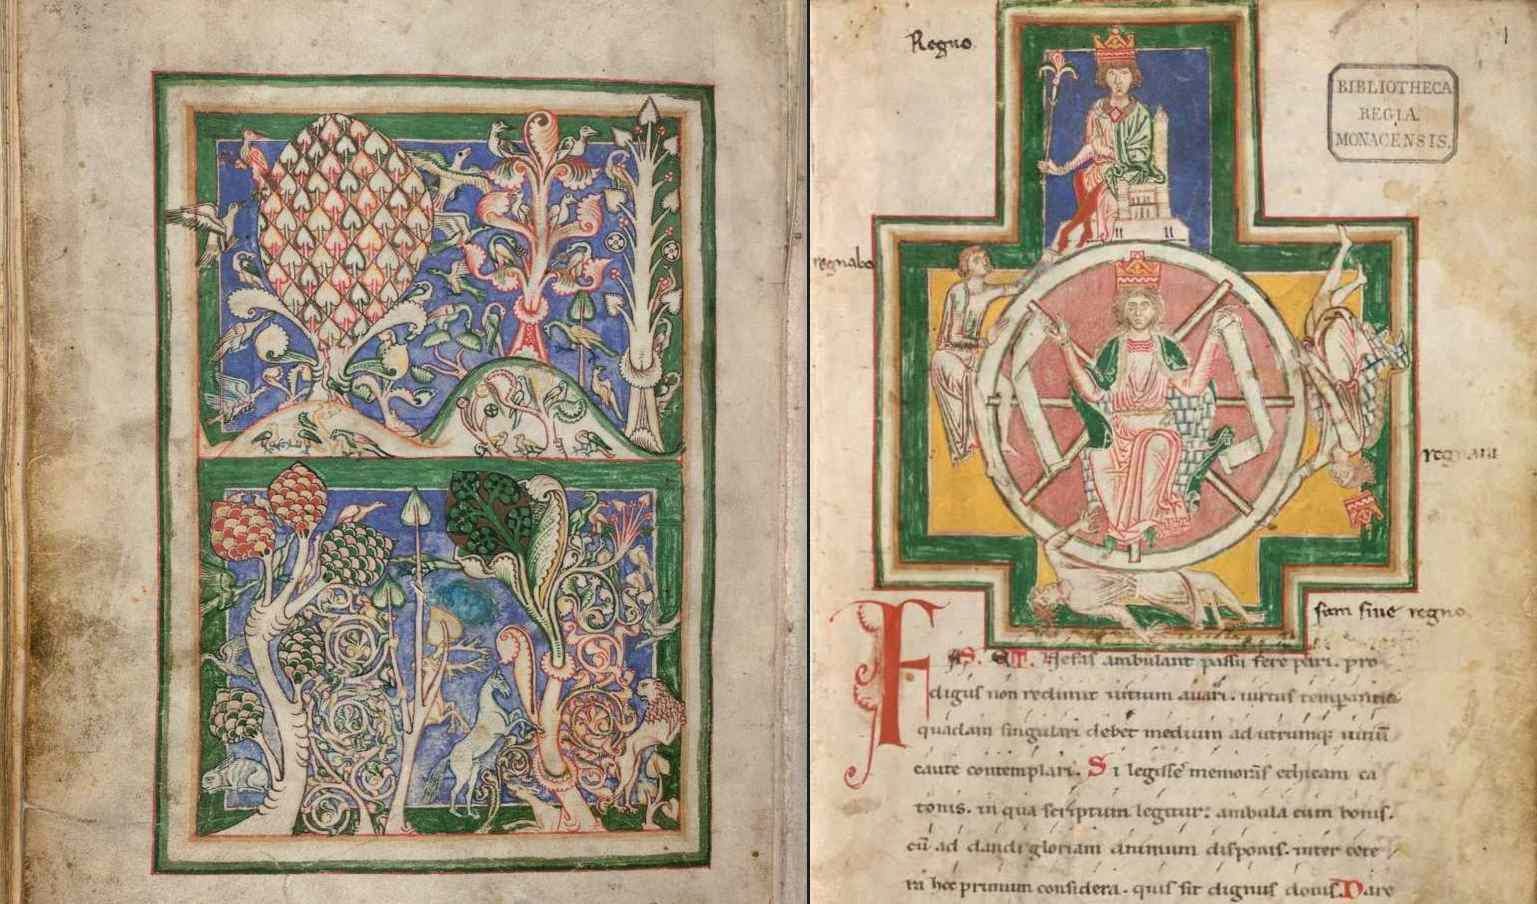 Regno
BIBLIOTHECA
REGIA
MONACENSIS.
regnabo
regnaui
sum sine regno
FAS ET Nefas ambulant passu fere pari. pro
digus non redimit uitium auari. uirtus temperantia
quadam singulari debet medium ad utrumque uitiū
caute contemplari. Si legisse memoras ethicam ca
tonis. in qua scriptum legitur: ambula cum bonis.
cū ad dandi gloriam animum disponis. inter cete
ra hoc primum considera. quis sit dignus donis. Dare